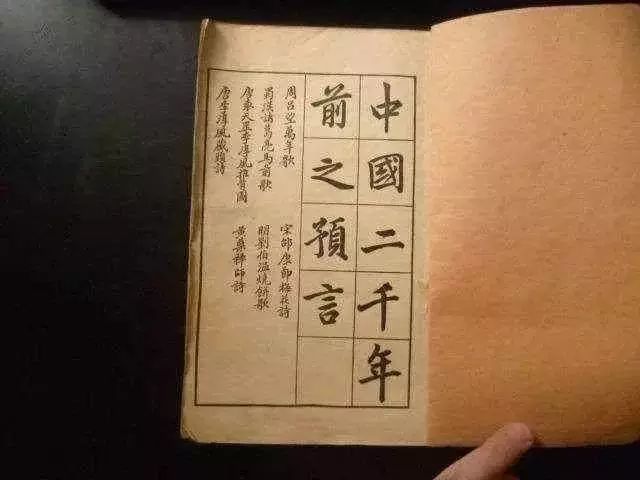 中國二千年
前之預言
周呂望萬年歌
蜀漢諸葛亮馬前歌
唐袁天罡李淳風推背圖
唐李淳風藏頭詩
宋邵康節梅花詩
明劉伯溫燒餅歌
黃蘗禪師詩